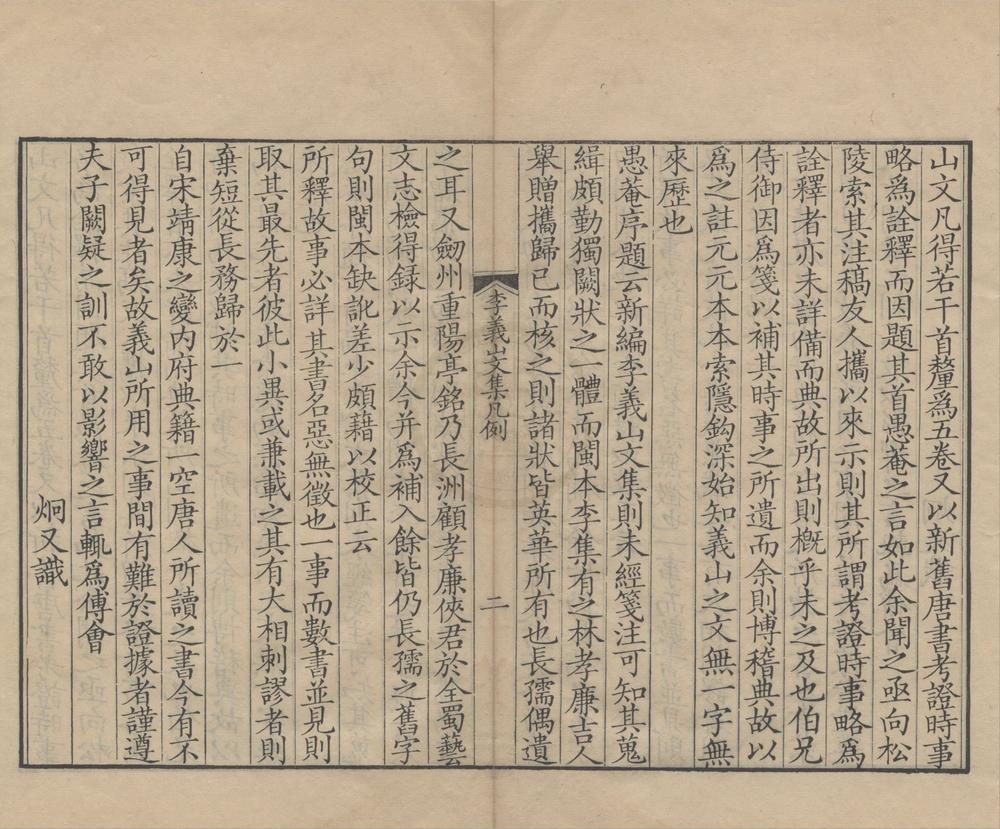 山文凡得若干首釐爲五卷又以新舊唐書考證時事
略爲詮釋而因題其首愚菴之言如此余聞之亟向松
陵索其注稿友人攜以來示則其所謂考證時事略爲
詮釋者亦未詳備而典故所出則槪乎未之及也伯兄
侍御因爲箋以補其時事之所遺而余則博稽典故以
爲之註元元本本索隱鈎深始知義山之文無一字無
來歷也
愚菴序題云新編李義山文集則未經箋注可知其蒐
緝頗勤獨闕狀之一體而閩本李集有之林孝廉吉人
舉贈攜歸已而核之則諸狀皆英華所有也長孺偶遺
李義山文集凡例
二
之耳又劒州重陽亭銘乃長洲顧孝廉俠君於全蜀藝
文志檢得録以示余今并爲補入餘皆仍長孺之舊字
句則閩本缺訛差少頗藉以校正云
所釋故事必詳其書名惡無徵也一事而數書並見則
取其最先者彼此小異或兼載之其有大相刺謬者則
棄短從長務歸於一
自宋靖康之變内府典籍一空唐人所讀之書今有不
可得見者矣故義山所用之事間有難於證據者謹遵
夫子闕疑之訓不敢以影響之言輒爲傅會
炯又識